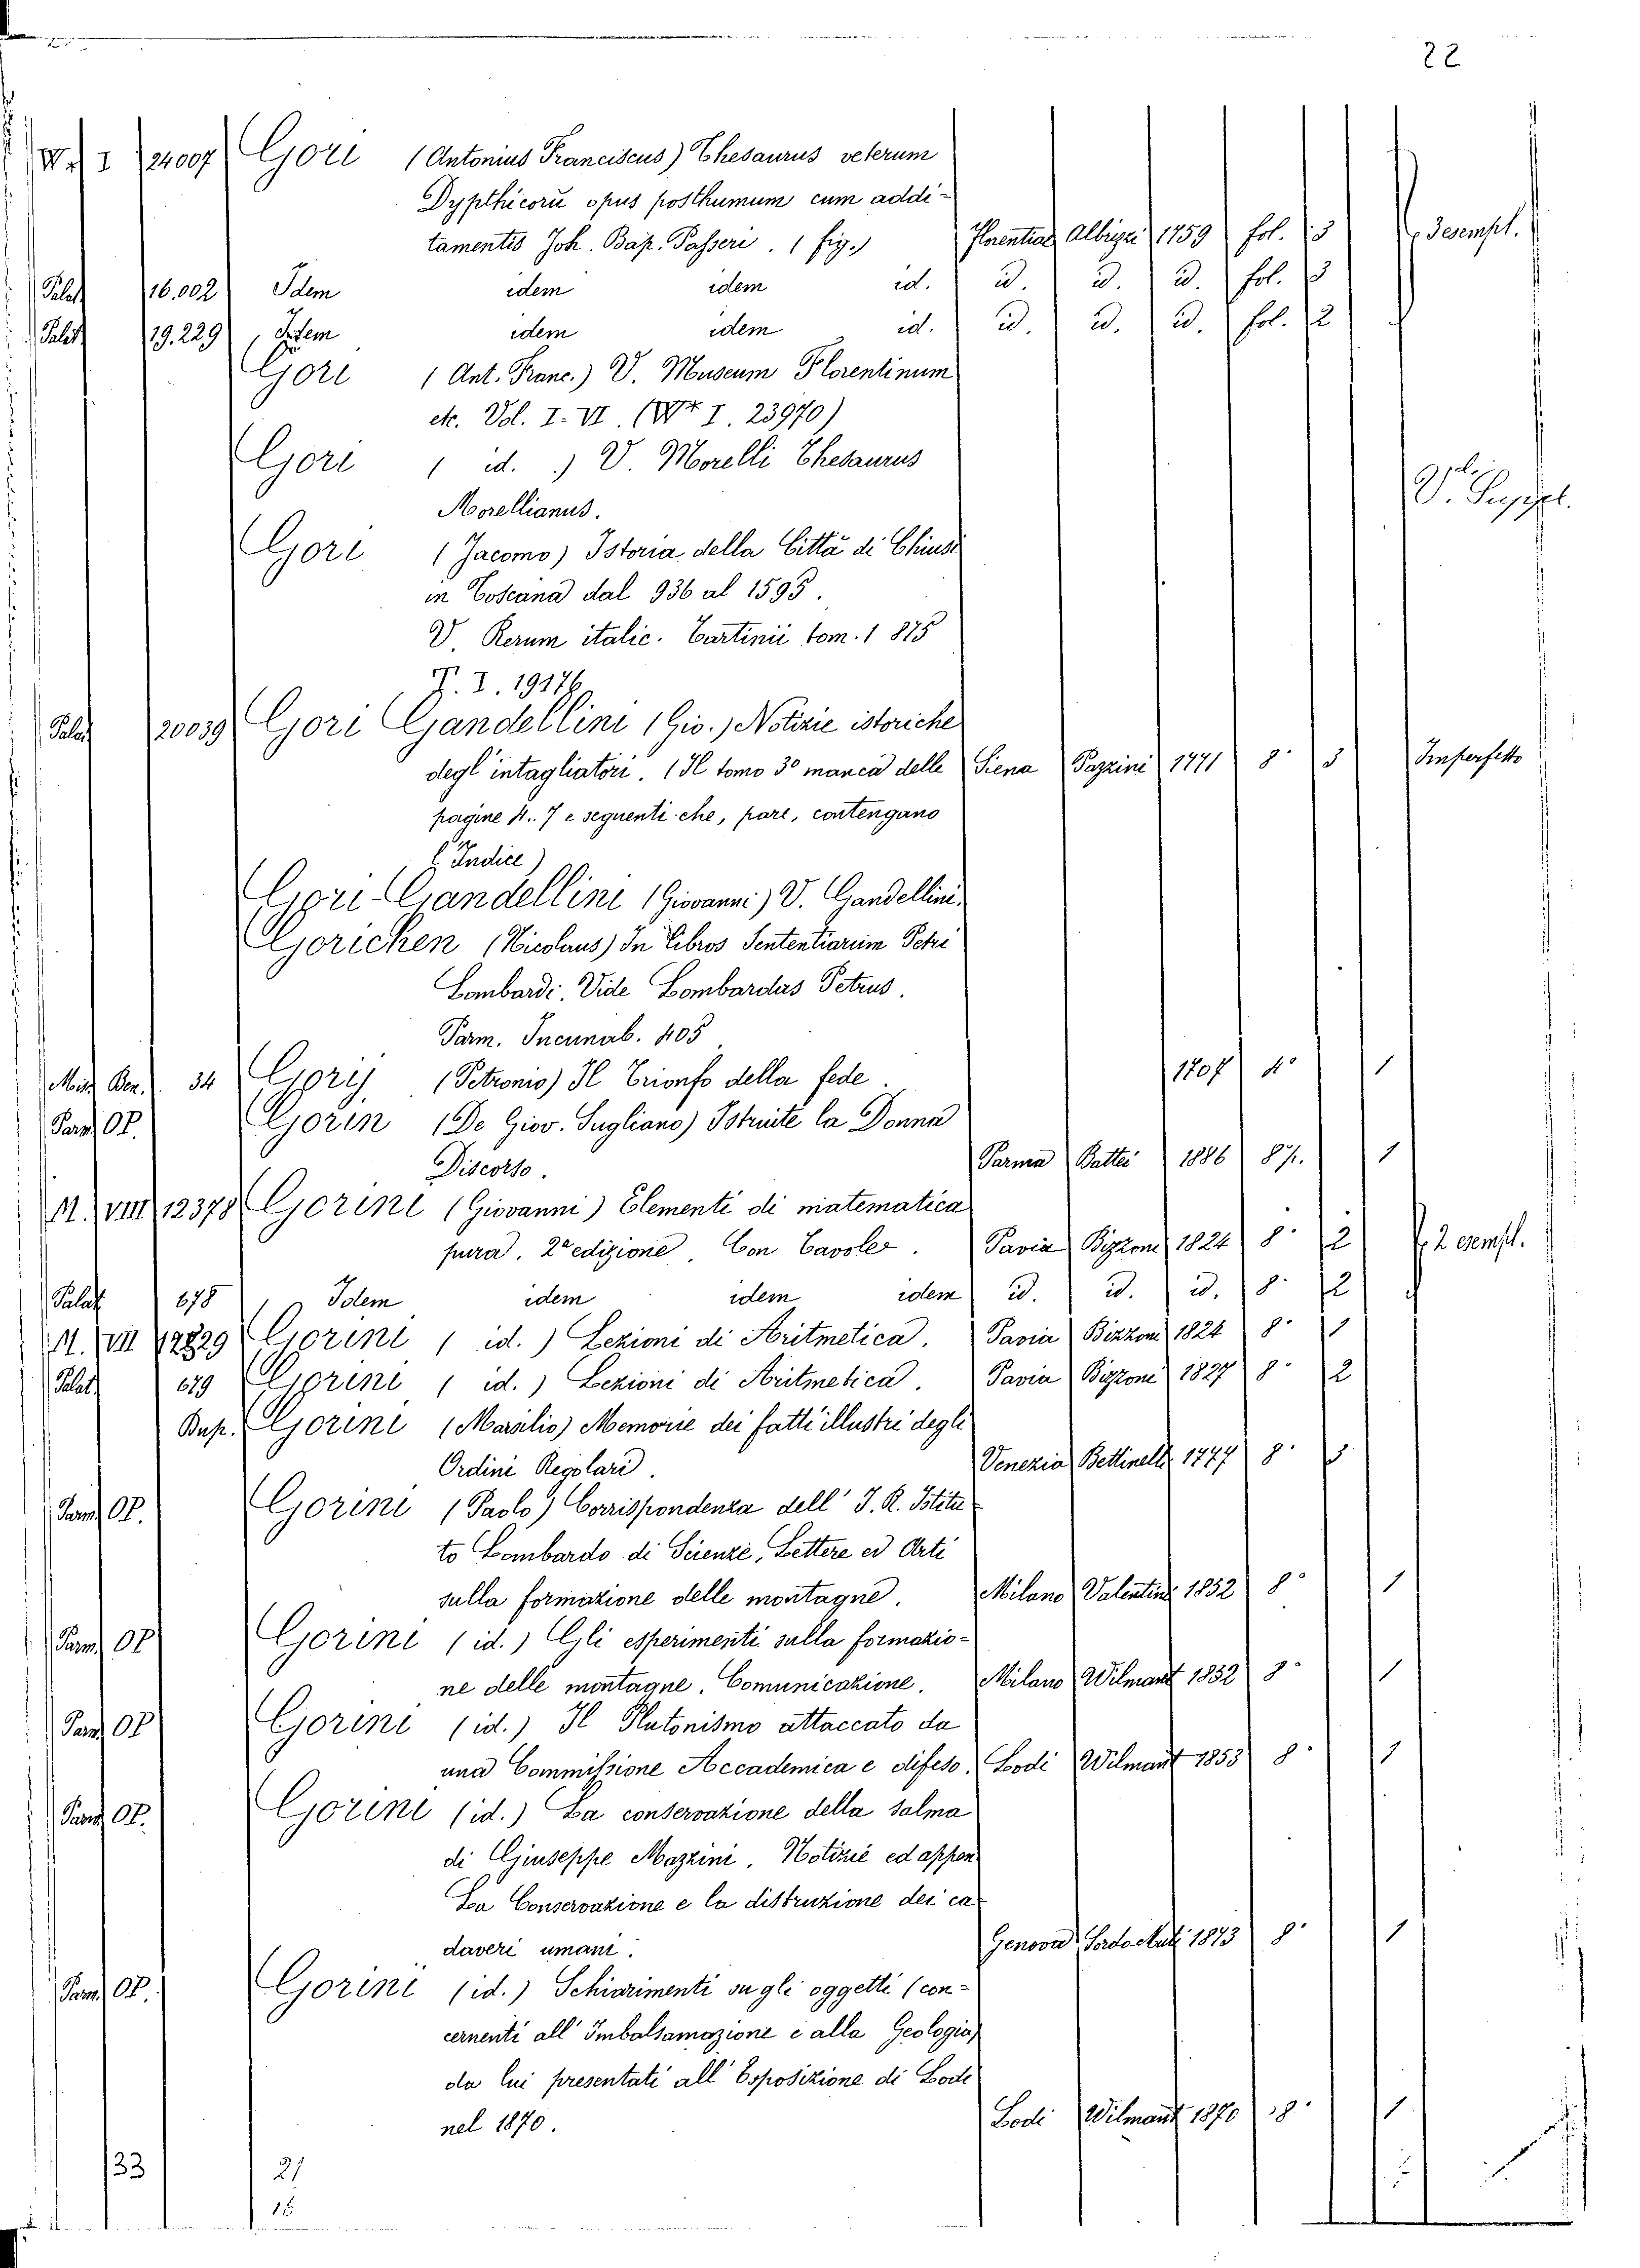 22
W.* I 24007 Gori (Antonius Franciscus) Thesaurus veterum
Dypthicorũ opus posthumum cum addi-
tamentis Joh. Bap. Passeri. (fig.) Florentiae Albizzi 1759 fol. 3 3 esempl.
Palat 16.002 Idem idem idem id. id. id. id. fol. 3
Palat 19.229 Idem idem idem id. id. id. id. fol. 2
Gori (Ant. Franc.) V. Museum Florentinum
etc. Vol. I. VI. (W* I. 23970)
Gori ( id. ) V. Morelli Thesaurus
Morellianus. V. Suppl.
Gori (Jacomo) Istoria della Città di Chiusi
in Toscana dal 936 al 1595.
V. Rerum italic. Tartinii tom. 1 875
I. 19176
Palat 20039 Gori Gandellini (Gio.) Notizie istoriche
degl'intagliatori. (Il tomo 3º manca delle Siena Pazzini 1771 8º 3 Imperfetto
pagine 4..7 e seguenti che, pare, contengano
l'Indice)
Gori-Gandellini (Giovanni) V. Gandellini.
Gorichen (Nicolaus) In Libros Sententiarum Petri
Lombardi. Vide Lombardus Petrus.
Parm. Incunab. 405
Ben. 34 Gory (Petronio) Il Trionfo della fede. 1707 4º 1
Parm. OP. Gorin (De Giov. Sugliano) Istruite la Donna
Discorso. Parma Battei 1886 8º 1
M. VIII 12378 Gorini (Giovanni) Elementi di matematica
pura. 2ª edizione. Con tavole. Pavia Bizzoni 1824 8º 2 2 esempl.
Palat 678 Idem idem idem idem id. id. id. 8º 2
M. VII Gorini ( id. ) Lezioni di Aritmetica. Pavia Bizzoni 1824 8º 1
Palat 679 Gorini ( id. ) Lezioni di Aritmetica. Pavia Bizzoni 1827 8º 2
Bup. Gorini (Marsilio) Memorie dei fatti illustri degli
Ordini Regolari. Venezia Bettinelli 1777 8º 3
Parm. OP. Gorini (Paolo) Corrispondenza dell' I. R. Istitu-
to Lombardo di Scienze, Lettere ed Arti
sulla formazione delle montagne. Milano Valentini 1852 8º 1
Parm. OP Gorini (id.) Gli esperimenti sulla formazio-
ne delle montagne. Comunicazione. Milano Wilmant 1852 8º 1
Parm. OP Gorini (id.) Il Plutonismo attaccato da
una Commissione Accademica e difeso. Lodi Wilmant 1853 8º 1
Parm. OP. Gorini (id.) La conservazione della salma
di Giuseppe Mazzini. Notizie ed appen.
La Conservazione e la distruzione dei ca
daveri umani. Genova Sordo Muti 1873 8º 1
Parm. OP. Gorini (id.) Schiarimenti su gli oggetti (con-
cernenti all'Imbalsamazione e alla Geologia)
da lui presentati all'Esposizione di Lodi
nel 1870. Lodi Wilmant 1870 8º 1
33 21